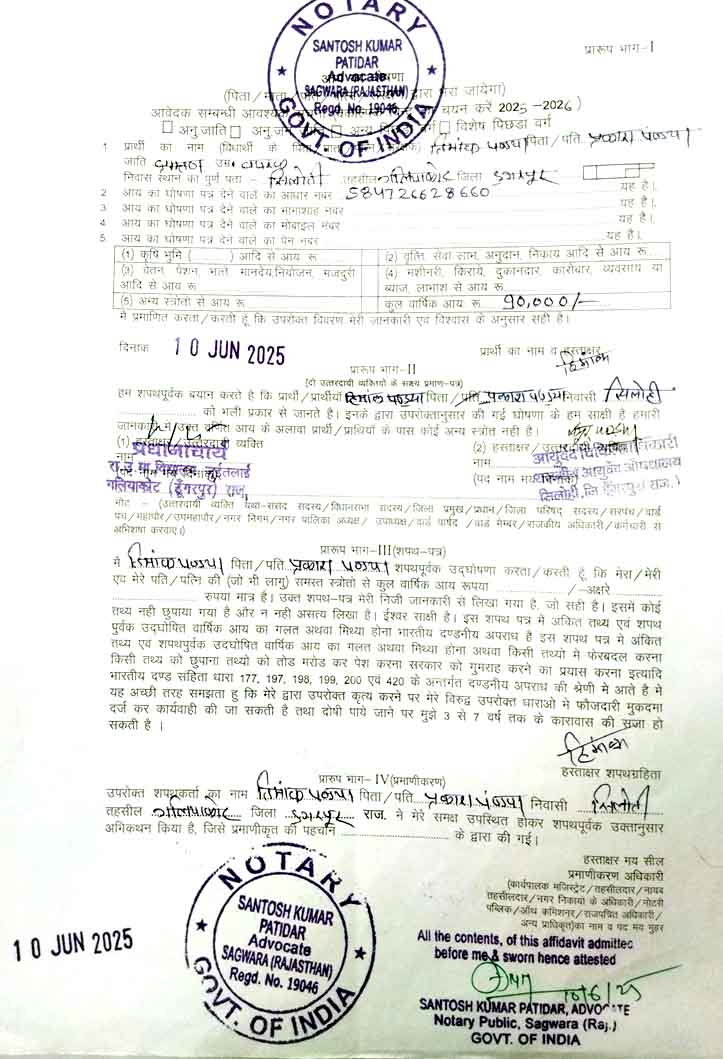 NOTARY
SANTOSH KUMAR
PATIDAR
Advocate
SAGWARA (RAJASTHAN)
Regd. No. 19046
GOVT. OF INDIA
प्रारूप भाग-I
घोषणा
(पिता/माता/ द्वारा भरा जायेगा)
आवेदक सम्बन्धी आवश्यक चयन करें 2025-2026)
अनु जाति अनु जन अन्य वर्ग विशेष पिछडा वर्ग
1 प्रार्थी का नाम (विधार्थी के पिता हिमांक पण्ड्या पिता/पति प्रकाश पण्ड्या
जाति ब्राह्मण उम्र
निवास स्थान का पूर्ण पता - सिलोही तहसील गलियाकोट जिला डूंगरपुर
2. आय का घोषणा पत्र देने वाले का आधार नंबर 584726628660 यह है।
3. आय का घोषणा पत्र देने वाले का भामाशाह नंबर यह है।
4. आय का घोषणा पत्र देने वाले का मोबाइल नंबर यह है।
5. आय का घोषणा पत्र देने वाले का पेन नंबर यह है।
(1) कृषि भुमि ( ) आदि से आय रू (2) वृत्ति, सेवा लाभ, अनुदान, निकाय आदि से आय रू
(3) वेतन, पेंशन, भत्ते मानदेय,नियोजन, मजदुरी आदि से आय रू (4) मशीनरी, किराये, दुकानदार, कारोबार, व्यवसाय या ब्याज, लाभाश से आय रू
(5) अन्य स्त्रोतो से आय रू कुल वार्षिक आय रू 90,000/-
मै प्रमाणित करता/करती हूं कि उपरोक्त विवरण मेरी जानकारी एवं विश्वास के अनुसार सही है।
दिनांक 10 JUN 2025 प्रार्थी का नाम व हस्ताक्षर
हिमांक
प्रारूप भाग-II
(दो उत्तरदायी व्यक्तियों के साक्ष्य प्रमाण-पत्र)
हम शपथपूर्वक बयान करते है कि प्रार्थी/प्रार्थीयों हिमांक पण्ड्या पिता/पति प्रकाश पण्ड्या निवासी सिलोही
को भली प्रकार से जानते है। इनके द्वारा उपरोक्तानुसार की गई घोषणा के हम साक्षी है हमारी
जानकारी में उक्त वर्णित आय के अलावा प्रार्थी/प्रार्थियों के पास कोई अन्य स्त्रोत नही है।
(1) हस्ताक्षर/उत्तरदायी व्यक्ति (2) हस्ताक्षर/उत्तरदायी
प्रधानाचार्य
नाम नाम
रा.उ.मा.विद्यालय,
गलियाकोट (डूँगरपुर) राज.
(पद नाम मय
सिलोही,जि.डूंगरपुर राज.)
नोट - (उत्तरदायी व्यक्ति यथा-संसद सदस्य/विधानसभा सदस्य/जिला प्रमुख/प्रधान/जिला परिषद् सदस्य/सरपंच/वार्ड
पंच/महापौर/उपमहापौर/नगर निगम/नगर पालिका अध्यक्ष/ उपाध्यक्ष/वार्ड पार्षद /वार्ड मेम्बर/राजकीय अधिकारी/कर्मचारी से
अभिशंषा करवाए।)
प्रारूप भाग-III(शपथ-पत्र)
मै हिमांक पण्ड्या पिता/पति प्रकाश पण्ड्या शपथपूर्वक उद्घोषणा करता/करती हूँ, कि मेरा/मेरी
एवं मेरे पति/पत्नि की (जो भी लागु) समस्त स्त्रोतो से कुल वार्षिक आय रूपया /-अक्षरे
रुपया मात्र है। उक्त शपथ-पत्र मेरी निजी जानकारी से लिखा गया है, जो सही है। इसमें कोई
तथ्य नही छुपाया गया है और न नही असत्य लिखा है। ईश्वर साक्षी है। इस शपथ पत्र में अंकित तथ्य एवं शपथ
पुर्वक उद्घोषित वार्षिक आय का गलत अथवा मिथ्या होना भारतीय दण्डनीय अपराध है इस शपथ पत्र मे अंकित
तथ्य एवं शपथपुर्वक उद्घोषित वार्षिक आय का गलत अथवा मिथ्या होना अथवा किसी तथ्यो मे फेरबदल करना
किसी तथ्य को छुपाना तथ्यो को तोड मरोड कर पेश करना सरकार को गुमराह करने का प्रयास करना इत्यादि
भारतीय दण्ड संहिता धारा 177, 197, 198, 199, 200 एवं 420 के अन्तर्गत दण्डनीय अपराध की श्रेणी मे आते है मे
यह अच्छी तरह समझता हु कि मेरे द्वारा उपरोक्त कृत्य करने पर मेरे विरुद्व उपरोक्त धाराओ मे फौजदारी मुकदमा
दर्ज कर कार्यवाही की जा सकती है तथा दोषी पाये जाने पर मुझे 3 से 7 वर्ष तक के कारावास की सजा हो
सकती है ।
हिमांक
हस्ताक्षर शपथग्रहिता
प्रारुप भाग- IV(प्रमाणीकरण)
उपरोक्त शपथकर्ता का नाम हिमांक पण्ड्या पिता/पति प्रकाश पंण्ड्या निवासी सिलोही
तहसील गलियाकोट जिला डूंगरपुर राज. ने मेरे समक्ष उपस्थित होकर शपथपूर्वक उक्तानुसार
अभिकथन किया है, जिसे प्रमाणीकृत की पहचान के द्वारा की गई।
हस्ताक्षर मय सील
प्रमाणीकरण अधिकारी
(कार्यपालक मजिस्ट्रेट/तहसीलदार/नायब
तहसीलदार/नगर निकायों के अधिकारी/नोटेरी
पब्लिक/ऑथ कमिश्नर/राजपत्रित अधिकारी/
अन्य प्राधिकृत)का नाम व पद मय मुहर
NOTARY
SANTOSH KUMAR
PATIDAR
Advocate
SAGWARA (RAJASTHAN)
Regd. No. 19046
GOVT. OF INDIA
10 JUN 2025
All the contents, of this affidavit admittec
before me & sworn hence attested
10/6/25
SANTOSH KUMAR PATIDAR, ADVOCATE
Notary Public, Sagwara (Raj.)
GOVT. OF INDIA